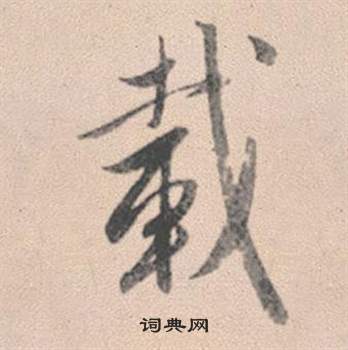 載
词典网